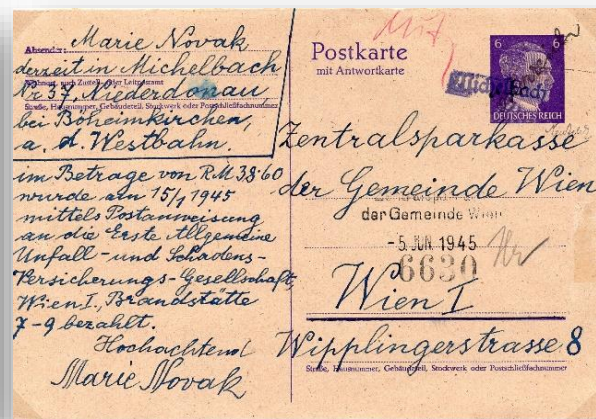 Absender: Marie Novak
derzeit in Michelbach
Nr. 37, Niederdonau,
Straße, Hausnummer, Gebäudeteil, Stockwerk oder Postschließfachnummer
bei Böheimkirchen,
a. d. Westbahn.
im Betrage von RM 38·60
wurde am 15/1 1945
mittels Postanweisung
an die Erste Allgemeine
Unfall- und Schadens-
Versicherungs-Gesellschaft,
Wien I., Brandstätte
7-9 bezahlt.
Hochachtend
Marie Novak
Postkarte
mit Antwortkarte
6 6
DEUTSCHES REICH
Michelbach
Zentralsparkasse
der Gemeinde Wien
der Gemeinde Wien
-5. JUN. 1945
6630
Wien I
Wipplingerstrasse 8
Straße, Hausnummer, Gebäudeteil, Stockwerk oder Postschließfachnummer